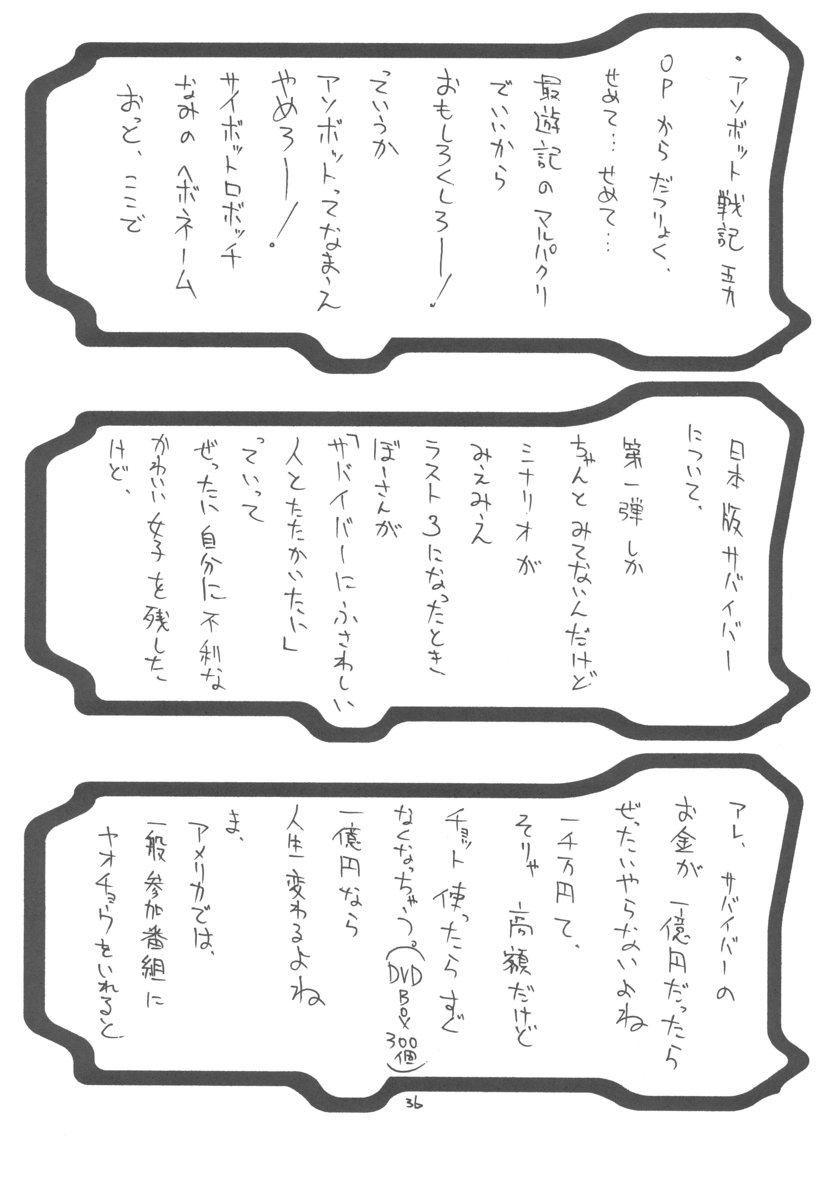 ・アソボット戦記五九
OPからだつりょく、
せめて…せめて…
最遊記のマルパクリ
でいいから
おもしろくしろー!
っていうか
アソボットってなまえ
やめろー!
サイボットロボッチ
なみのヘボネーム
おっと、ここで
日本版サバイバー
について、
第一弾しか
ちゃんとみてないんだけど
シナリオが
みえみえ
ラスト3になったとき
ぼーさんが
「サバイバーにふさわしい
人とたたかいたい」
っていって
ぜったい自分に不利な
かわいい女子を残した
けど、
アレ、サバイバーの
お金が一億円だったら
ぜったいやらないよね
一千万円て、
そりゃ高額だけど
チョット使ったらすぐ
なくなっちゃう。(DVD BOX 300個)
一億円なら
人生変わるよね
ま、
アメリカでは、
一般参加番組に
ヤオチョウをいれると
36